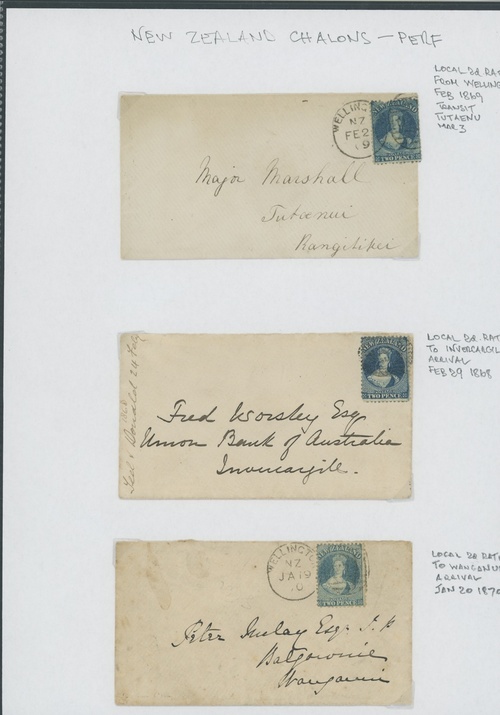 NEW ZEALAND CHALONS — PERF
LOCAL 2d RAT
FROM WELLING
FEB 1869
TRANSIT
TUTAENU
MAR 3
WELLING
NZ
FE 2
69
TWO PENCE
Major Marshall
Tutaenui
Rangitikei
LOCAL 2d. RAT
TO INVERCARGIL
ARRIVAL
FEB 29 1868
TWO PENCE
Donald 24 Feb
Fred Worsley Esq
Union Bank of Australia
Invercargile.
LOCAL 2d RAT
TO WANGANU
ARRIVAL
JAN 20 1870
WELLINGT
NZ
JA 19
0
TWO PENCE
Peter Imlay Esqr J.P
Balgownie
Wanganui